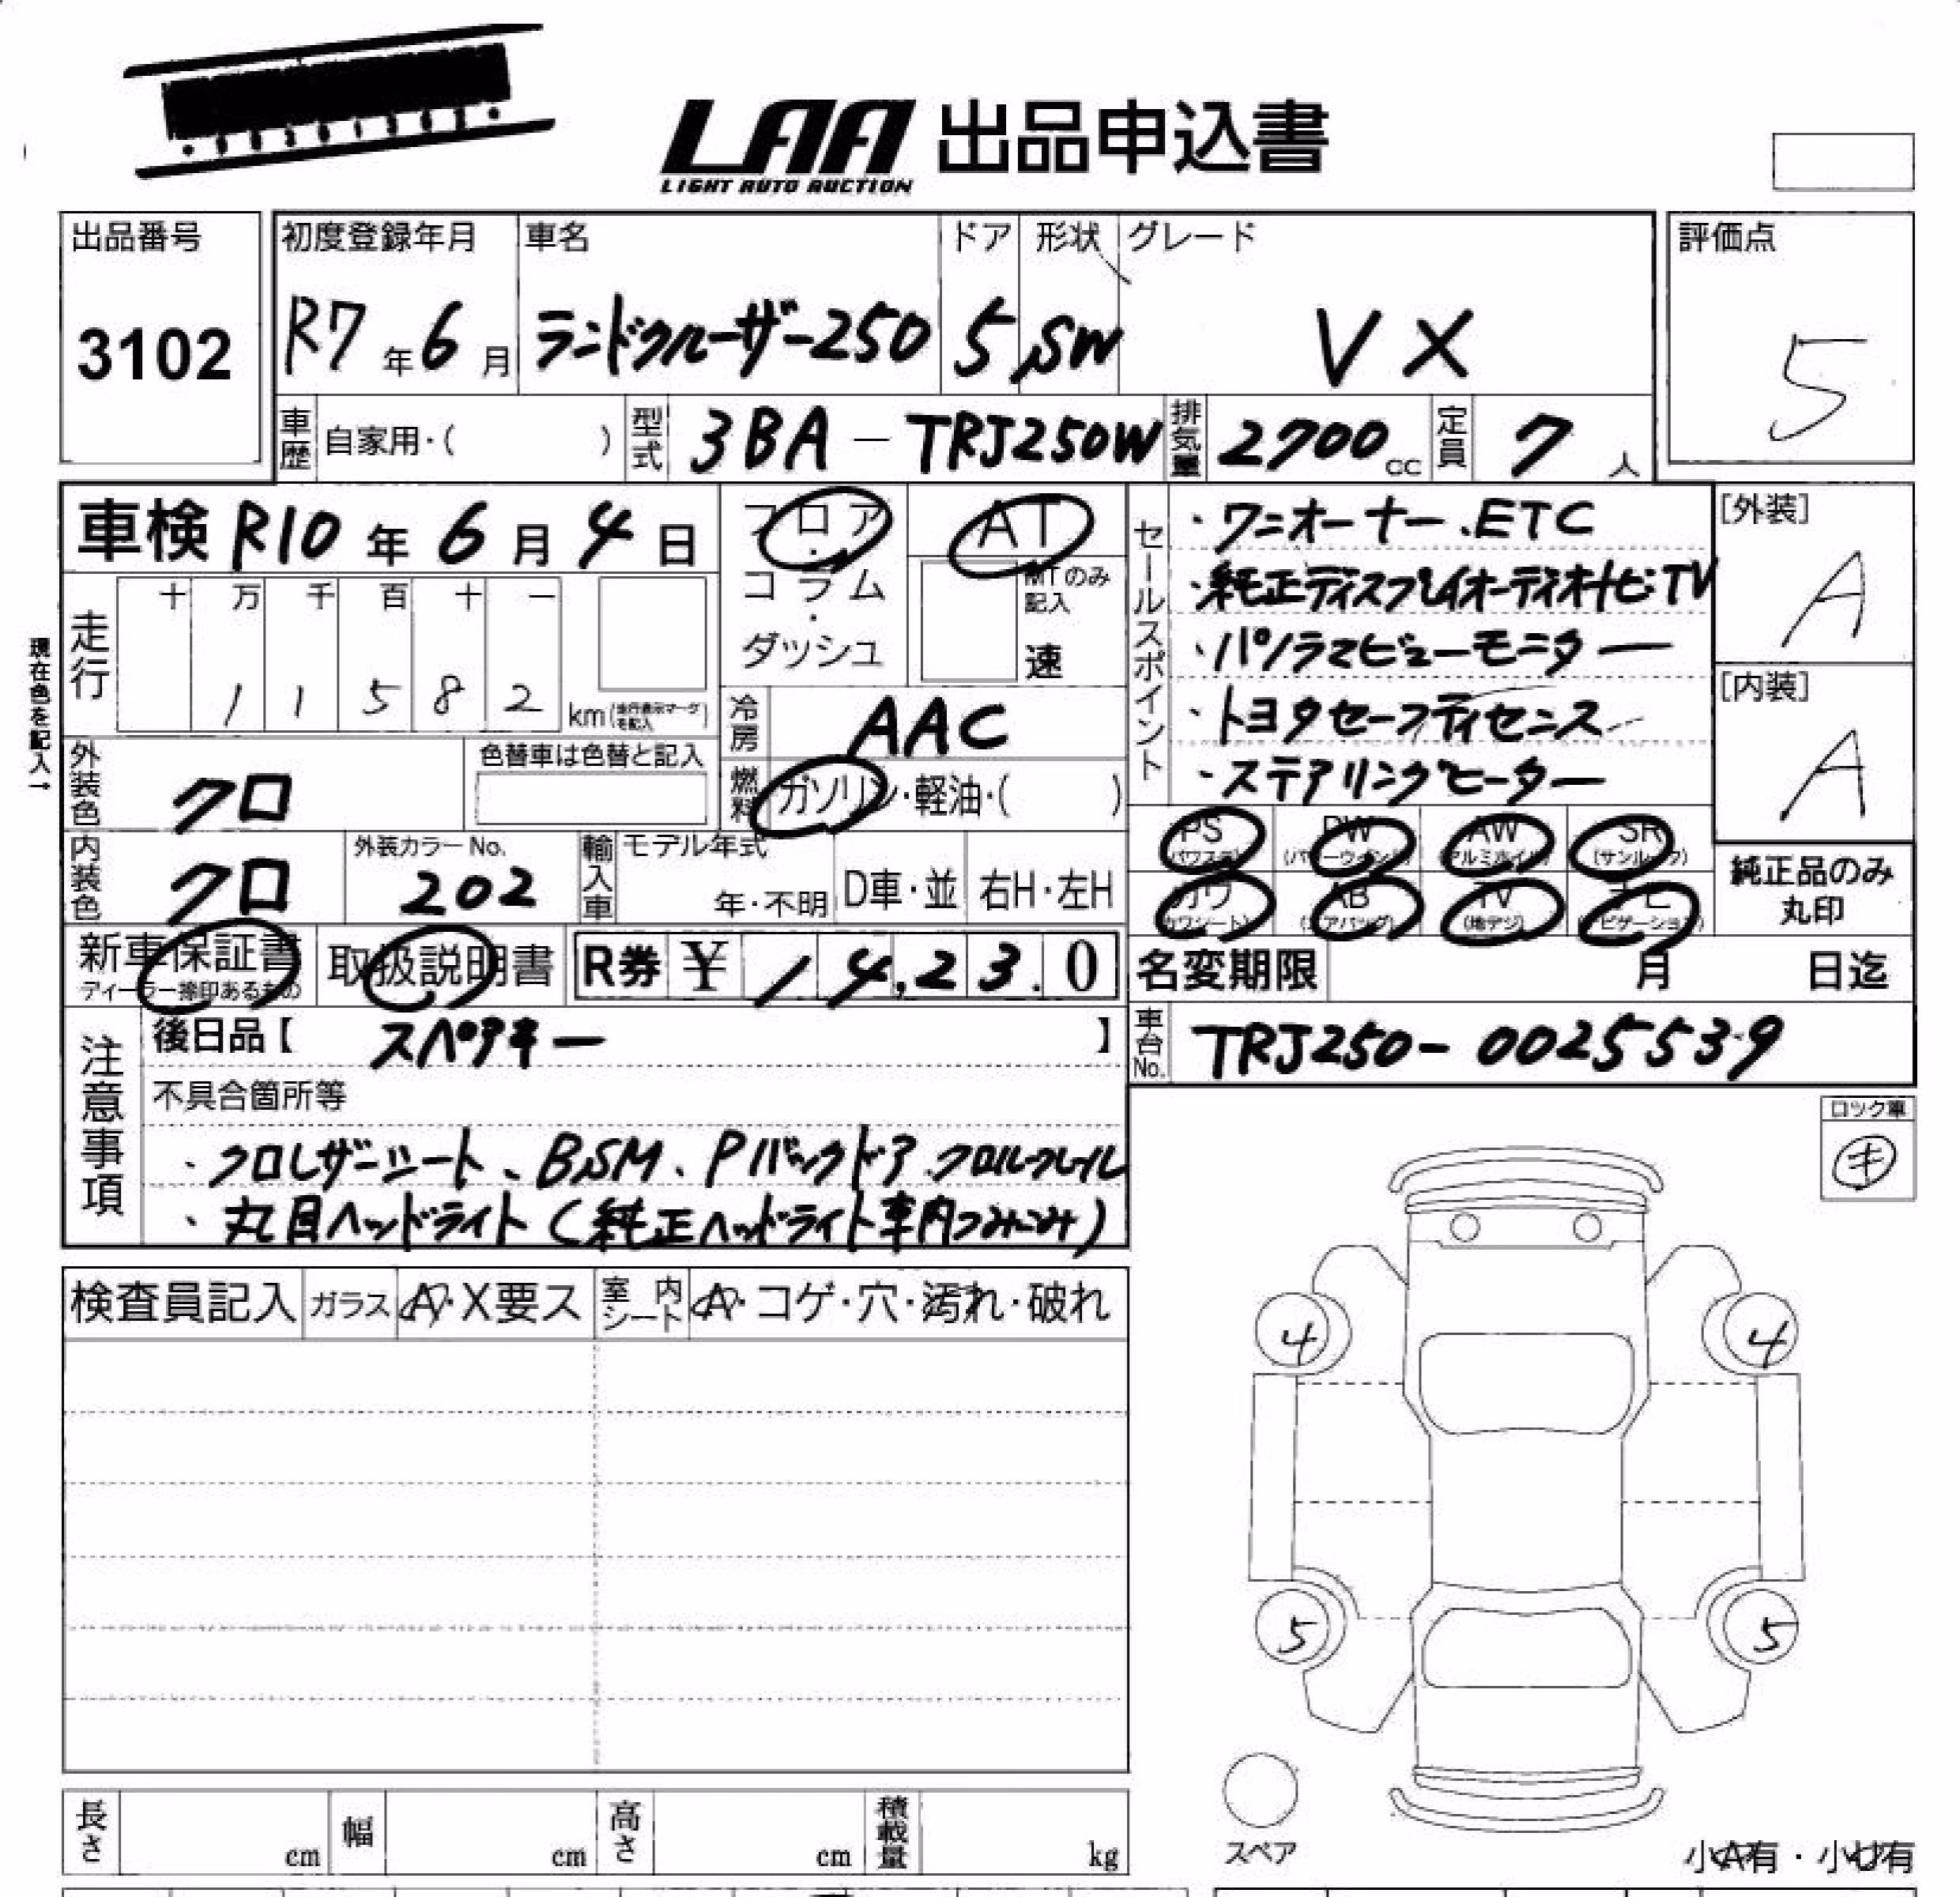 LAA 出品申込書
LIGHT AUTO AUCTION
出品番号
3102
初度登録年月
R7年6月
車名
ランドクルーザー250
ドア
5
形状
SW
グレード
VX
評価点
5
車歴 自家用・( )
型式 3BA-TRJ250W
排気量 2700cc
定員 7人
車検 R10年6月4日
フロア・コラム・ダッシュ
AT
MTのみ記入
速
セールスポイント
・ワンオーナー、ETC
・純正ディスプレイオーディオナビ・TV
・パノラマビューモニター
・トヨタセーフティセンス
・ステアリングヒーター
[外装]
A
[内装]
A
現在色を記入→
走行 十 万 千 百 十 一
1 1 5 8 2 km(走行表示マークを記入)
冷房 AAC
燃料 ガソリン・軽油・( )
外装色 クロ
色替車は色替と記入
内装色 クロ
外装カラーNo.
202
輸入車 モデル年式
年・不明 D車・並 右H・左H
PS (パワステ) PW (パワーウィンド) AW (アルミホイル) SR (サンルーフ)
カワ (カワシート) AB (エアバッグ) TV (地デジ) ナビ (ナビゲーション)
純正品のみ
丸印
新車保証書
ディーラー捺印あるもの
取扱説明書
R券 ¥ 14,23.0
名変期限 月 日迄
車台No. TRJ250-0025539
注意事項
後日品【 スペアキー 】
不具合箇所等
・クロレザーシート、BSM、Pバックドア、クロルーフレイル
・丸目ヘッドライト(純正ヘッドライト車内つみこみ)
ロック車
キ
検査員記入 ガラス A・X要ス 室内シート A・コゲ・穴・汚れ・破れ
4 4
5 5
スペア
長さ cm 幅 cm 高さ cm 積載量 kg
小A有・小U有